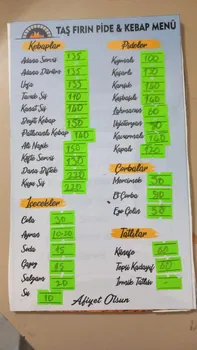 TAŞ FIRIN PİDE & KEBAP MENÜ
Kebaplar
Adana Servis 135
Adana Dürüm 135
Urfa 135
Tavuk Şiş 110
Kanat Şiş 140
Beyti Kebap 150
Patlıcanlı Kebap 160
Ali Nazik 150
Köfte Servis 130
Dana Biftek 220
Kuzu Şiş 220
İçecekler
Cola 30
Ayran 10-20
Soda 15
Çapoy 15
Şalgam 20
Su 10
Pideler
Kıymalı 100
Kaşarlı 130
Karışık 140
Kuşbaşılı 160
Lahmacun 60
Vejeteryan
Kavurmalı
Kapalı
Çorbalar
Mercimek 50
Et Çorba
Ezo Gelin 50
Tatlılar
Künefe 60
Tepsi Kadayıf 60
İrmik Tatlısı -
Afiyet Olsun